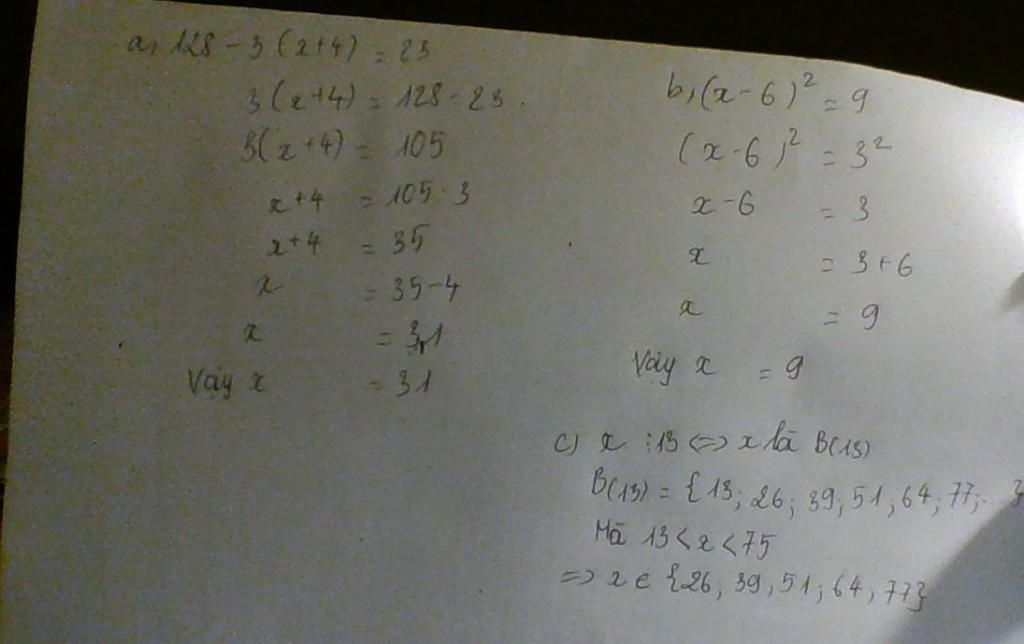 a, 128 - 3 (x+4) = 23
3 (x+4) = 128 - 23.
3(x+4) = 105
x+4 = 105 : 3
x+4 = 35
x = 35-4
x = 31
Vậy x = 31
b, (x-6)² = 9
(x-6)² = 3²
x-6 = 3
x = 3+6
x = 9
Vậy x = 9
c) x ⋮13 <=> x là B(13)
B(13) = {13; 26; 39; 51; 64; 77; ...}
Mà 13 < x < 75
=> x ∈ {26; 39; 51; 64; 77}